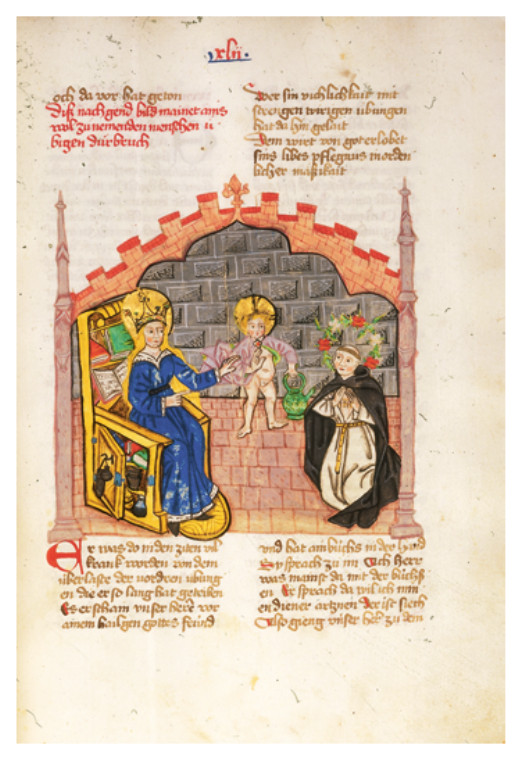 xlii.
och da vor hat geton
Disz nachgend bild mainet ains
wol zu nemenden menschen u
bigen durbruch
Wer sin vichlichkait mit
strengen wirigen ubungen
hat da hin gelait
Dem wirt von got erlobet
sins libes pflegnus in orden
licher massikait
Er was do in den ziten vil
krank worden von dem
uberlaste der vordren ubung
en die er so lang hat getriben
Es erscham vnser here vor
ainem hailgen gottes frund
vnd hat ain buchs in der hand
Sy sprach zu im Ach herr
was mainst du mit der buchs
en Er sprach da wil ich min
en diener artznen der ist siech
Also gieng vnser her zu dem